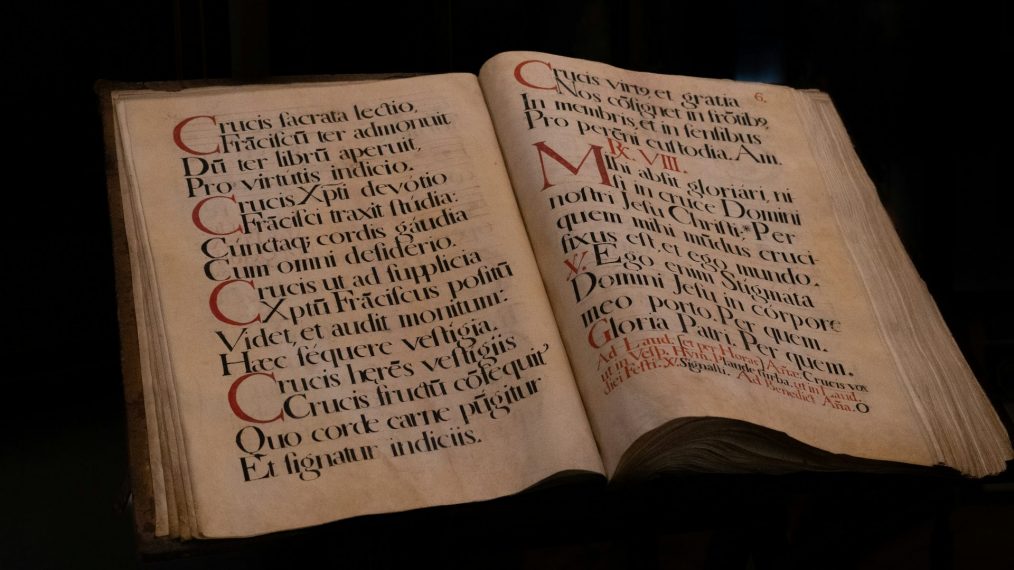 Crucis sacrata lectio,
Frāciſcū ter admonuit
Dū ter librū aperuit,
Pro virtútis indicio.
Crucis Xp̄ti devotio
Frāciſci traxit ſtúdia:
Cúnctaq; cordis gáudia
Cum omni deſidério.
Crucis ut ad ſupplicia
Xp̄tū Frāciſcus poſitū
Videt, et audit monitum:
Hæc ſéquere veſtígia.
Crucis herēs veſtígiis
Crucis fructū cōſequit
Quo corde carne pūgitur
Et ſignatur indiciis.
6.
Crucis virt9, et gratia
Nos cōſignet in frōtib9
In membris, et in ſenſibus
Pro perēni cuſtodia. Am.
℞. VIII.
Mihi abſit gloriári, ni
ſi in cruce Domini
noſtri Jeſu Chriſti:* Per
quem mihi mūdus cruci-
fixus eſt, et ego mundo.
℣. Ego enim Stigmata
Domini Jeſu in córpore
meo porto. Per quem.
Gloria Patri. Per quem.
Ad Laud. et per Horas Aña. Crucis vox
ut in Veſp. Hym. Plaude turba. ut in Laud.
dici Feſti. ℣. Signaſti. Ad Benedict Aña. O